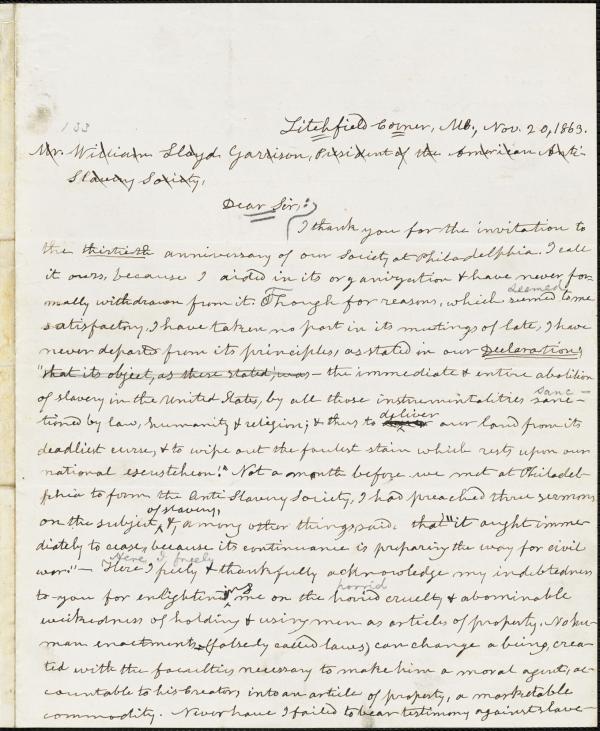 133
Litchfield Corner, Me., Nov. 20, 1863.
Mr. William Lloyd Garrison, President of the American Anti-
Slavery Society,
Dear Sir,:
I thank you for the invitation to
the thirtieth anniversary of our Society at Philadelphia. I call
it ours, because I aided in its organization & have never for-
mally withdrawn from it. Though for reasons, which seemed to me
deemed
satisfactory, I have taken no part in its meetings of late, I have
never departed from its principles, as stated in our Declaration;
"that its object, as there stated, was — the immediate & entire abolition
of slavery in the United States, by all those instrumentalities sanc-
sanc-
tioned by law, humanity & religion; & thus to deliver our land from its
deadliest curse, & to wipe out the foulest stain which rests upon our
national escutcheon." Not a month before we met at Philadel-
phia to form the Anti Slavery Society, I had preached three sermons
on the subject of slavery, &, among other things, said: that "it ought imme-
diately to cease, because its continuance is preparing the way for civil
war." — Here I freely & thankfully acknowledge my indebtedness
Here I freely
to you for enlightening me on the horrid cruelty & abominable
horrid
wickedness of holding & using men as articles of property. No hu-
man enactments (falsely called laws) can change a being, crea-
ted with the faculties necessary to make him a moral agent, ac-
countable to his Creator, into an article of property, a marketable
commodity. Never have I failed to bear testimony against slave-